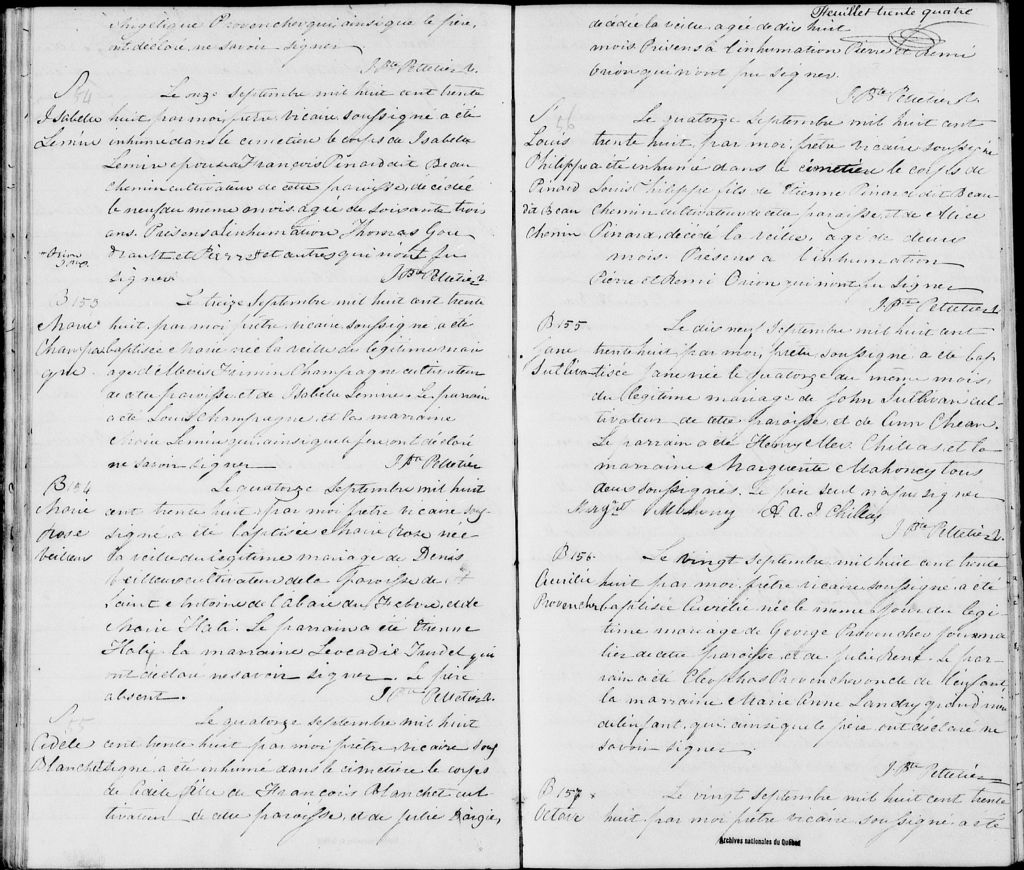 Angélique Provencher qui ainsi que le père,
ont déclaré ne savoir signer
J. Bte Pelletier
S 54
Isabelle
Lemire
Le onze Septembre mil huit cent trente
huit, par moi, prêtre vicaire soussigné a été
inhumé dans le cimetière le corps de Isabelle
Lemire épouse de François Pinard dit Beau
chemin cultivateur de cette paroisse, décédée
le neuf du même mois, agée de soixante trois
ans. Présens à l'inhumation Thomas Gou
drault et Pierre et autres qui n'ont pu
signer.
J. Bte Pelletier
B 153
Marie
Champa
gne
Le treize Septembre mil huit cent trente
huit, par moi prêtre, vicaire soussigné, a été
baptisée Marie née la veille du légitime mari
age d'Alexis Firmin Champagne cultivateur
de cette paroisse et de Isabelle Lemire. Le parrain
a été Louis Champagne, et la marraine
Marie Lemire qui, ainsi que le père, ont déclaré
ne savoir signer
J. Bte Pelletier
B 154
Marie
Rose
Veilleux
Le quatorze Septembre mil huit
cent trente huit, par moi prêtre vicaire sous
signé a été baptisée Marie Rose née
la veille du légitime mariage de Denis
Veilleux cultivateur de la Paroisse de
Saint Antoine de la baie du Febvre, et de
Marie Hali. Le parrain a été Etienne
Hali, la marraine Leocadie Trudel qui
ont déclaré ne savoir signer. Le père
absent.
J. Bte Pelletier
S 55
Adèle
Blanchet
Le quatorze septembre mil huit
cent trente huit par moi prêtre, vicaire sous
signé, a été inhumé dans le cimetière le corps
de Adèle fille de François Blanchet cul
tivateur de cette paroisse, et de Julie
Feuillet trente quatre
décédée la veille, agée de dix huit
mois. Présens à l'inhumation Pierre et Remi
Orion qui n'ont pu signer.
J. Bte Pelletier
S 56
Louis
Philippe
Pinard
dit Beau
Chemin
Le quatorze Septembre mil huit cent
trente huit, par moi, prêtre vicaire soussigné
a été inhumé dans le cimetière le corps de
Louis Philippe fils de Etienne Pinard dit Beau
Chemin cultivateur de cette paroisse, et de Alice
Pinard, décédé la veille, agé de deux
mois. Présens à l'inhumation
Pierre et Remi Orion qui n'ont pu signer
J. Bte Pelletier
B 155
Jane
Sulliva
Le dix neuf Septembre mil huit cent
trente huit, par moi, prêtre soussigné a été bap
tisée Jane née le quatorze du même mois,
du légitime mariage de John Sullivan cul
tivateur de cette paroisse, et de Ann Chean.
Le parrain a été Henry Allen Chillas, et la
marraine Marguerite Mahoney tous
deux soussignés. Le père seul n'a pu signer
Margt Mahony H. A. J. Chillas
J. Bte Pelletier
B 156
Aurélie
Provencher
Le vingt Septembre, mil huit cent trente
huit par moi, prêtre vicaire, soussigné, a été
baptisée Aurélie née le même jour du légi
time mariage de George Provencher journa
lier de cette paroisse et de Julie René. Le par
rain a été Cléophas Provencher oncle de l'enfant,
la marraine Marie Anne Landry grand'mère
de l'enfant, qui, ainsi que le père ont déclaré ne
savoir signer.
J. Bte Pelletier
B 157
Octave
Le vingt Septembre mil huit cent trente
huit, par moi prêtre vicaire soussigné, a été
Archives nationales du Québec